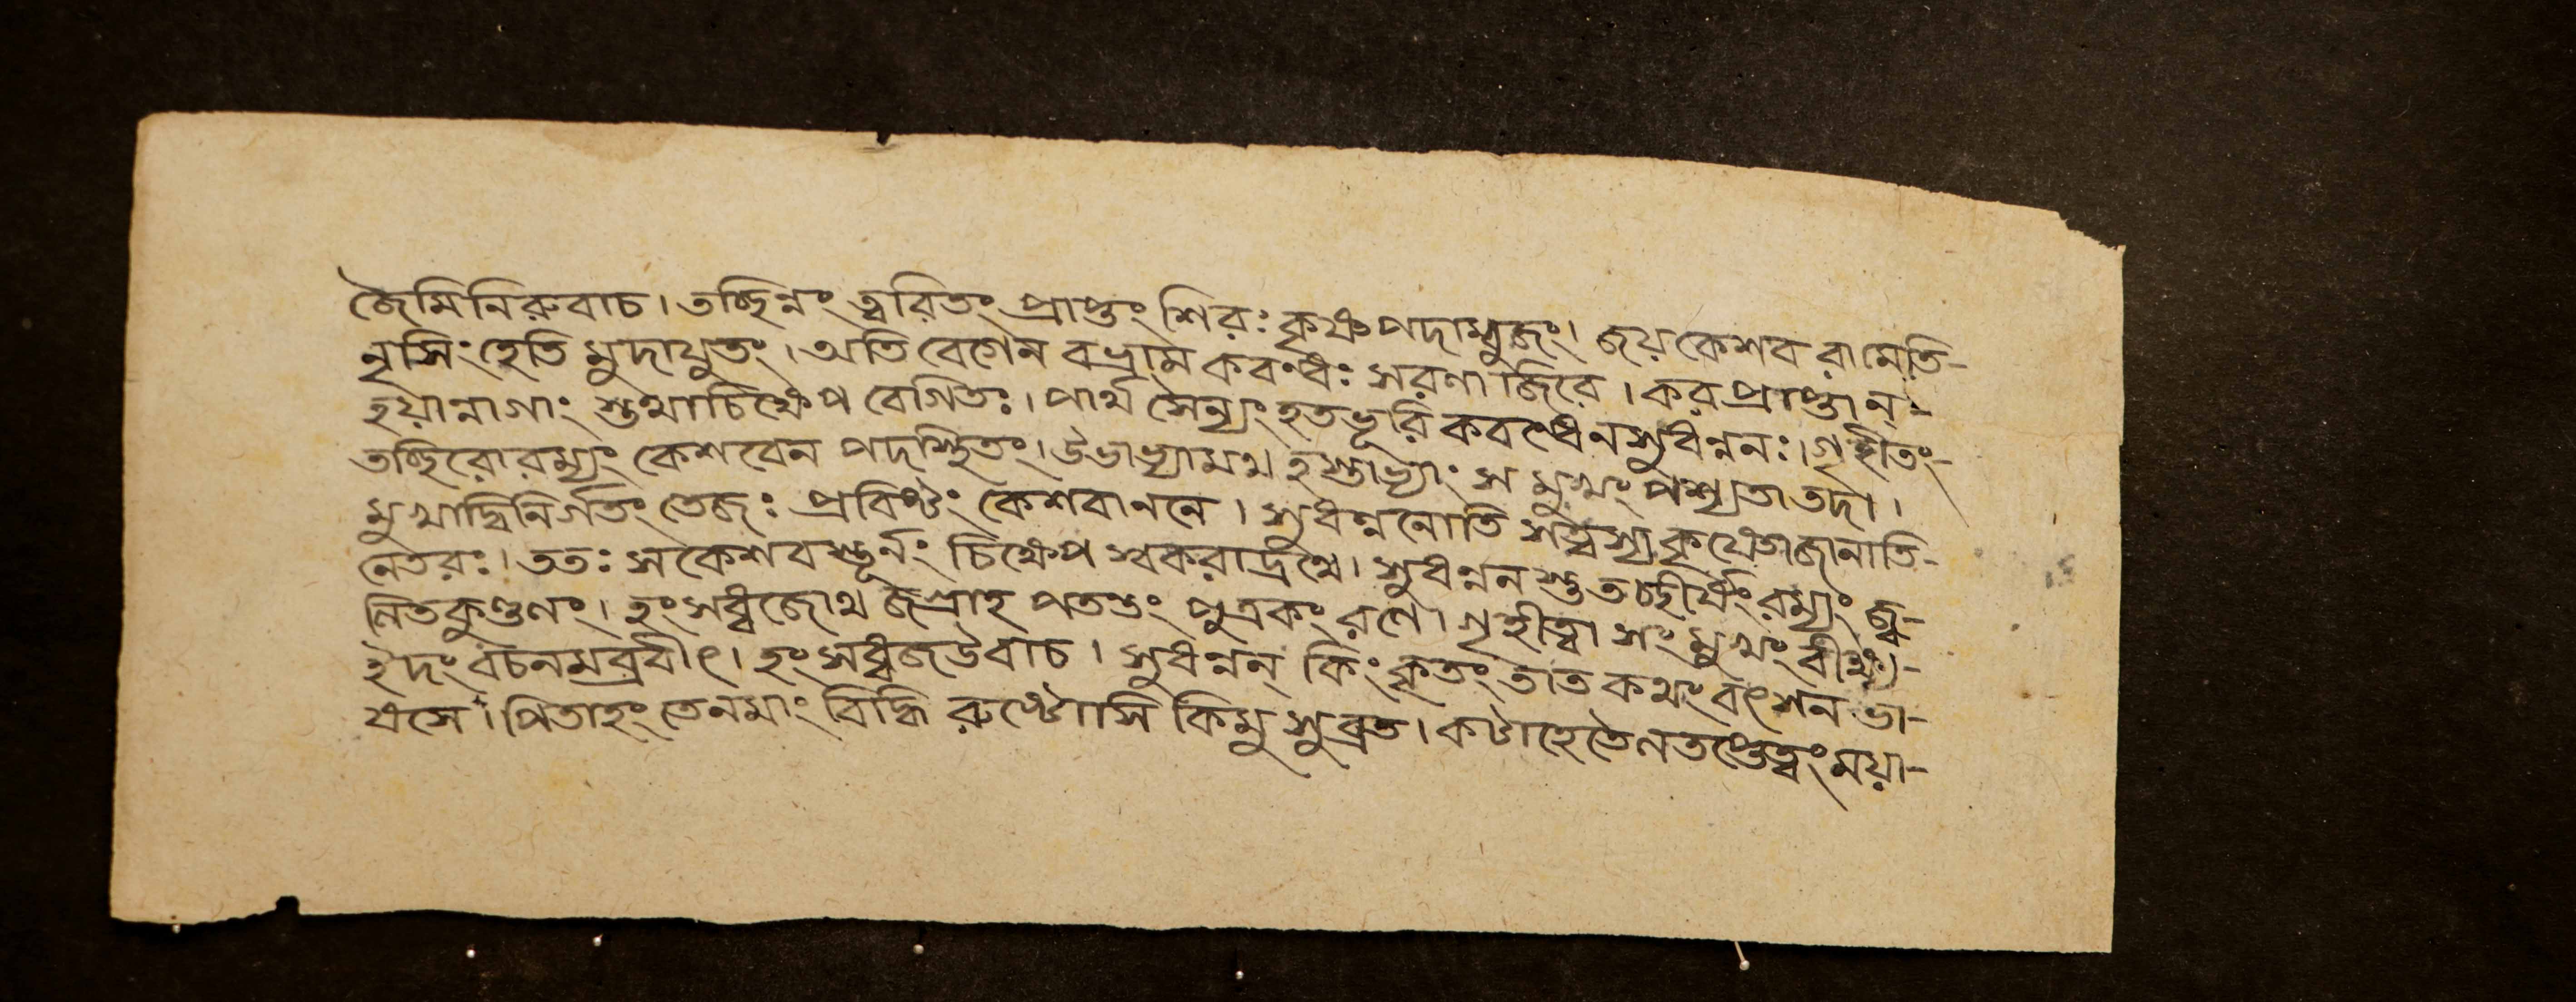 জৈমিনিরুবাচ। তচ্ছিন্নং ত্বরিতং প্রাপ্তং শিরঃ কৃষ্ণপদাম্বুজং। জয় কেশব রামেতি-
নৃসিংহেতি মুদাযুতং। অতিবেগেন বভ্রাম কবন্ধঃ সরণাজিরে। করপ্রাপ্তান্-
হয়ান্নাগাং স্তথা চিক্ষেপ বেগিতঃ। পার্থ সৈন্যং হতভূরি কবন্ধেন সুধন্বনঃ। গৃহীতং-
তচ্ছিরো রম্যং কেশবেন পদস্থিতং। উভাভ্যামথ হস্তাভ্যাং স মুখং পশ্যতা তদা।
মুখাদ্বিনির্গতং তেজঃ প্রবিষ্টং কেশবাননে। সুধন্বনোতি সত্ত্বস্য কৃষ্ণো জানাতি-
নেতরঃ। ততঃ স কেশব স্তূর্নং চিক্ষেপ স্বকরাদ্রথে। সুধন্বন স্তু তচ্ছীর্ষং রম্যং জ্ব-
লিতকুণ্ডলং। হংসধ্বজোথ জগ্রাহ পতন্তং পুত্রকং রণে। গৃহীত্বা সংমুখং বীক্ষ্য-
ইদং বচনমব্রবীৎ। হংসধ্বজ উবাচ। সুধন্বন্ কিং কৃতং তাত কথং বৎস ন ভা-
ষসে। পিতাহং তেন মাং বিদ্ধি রুষ্টোসি কিমু সুব্রত। কটাহে তৈলতপ্তে ত্বং ময়া-